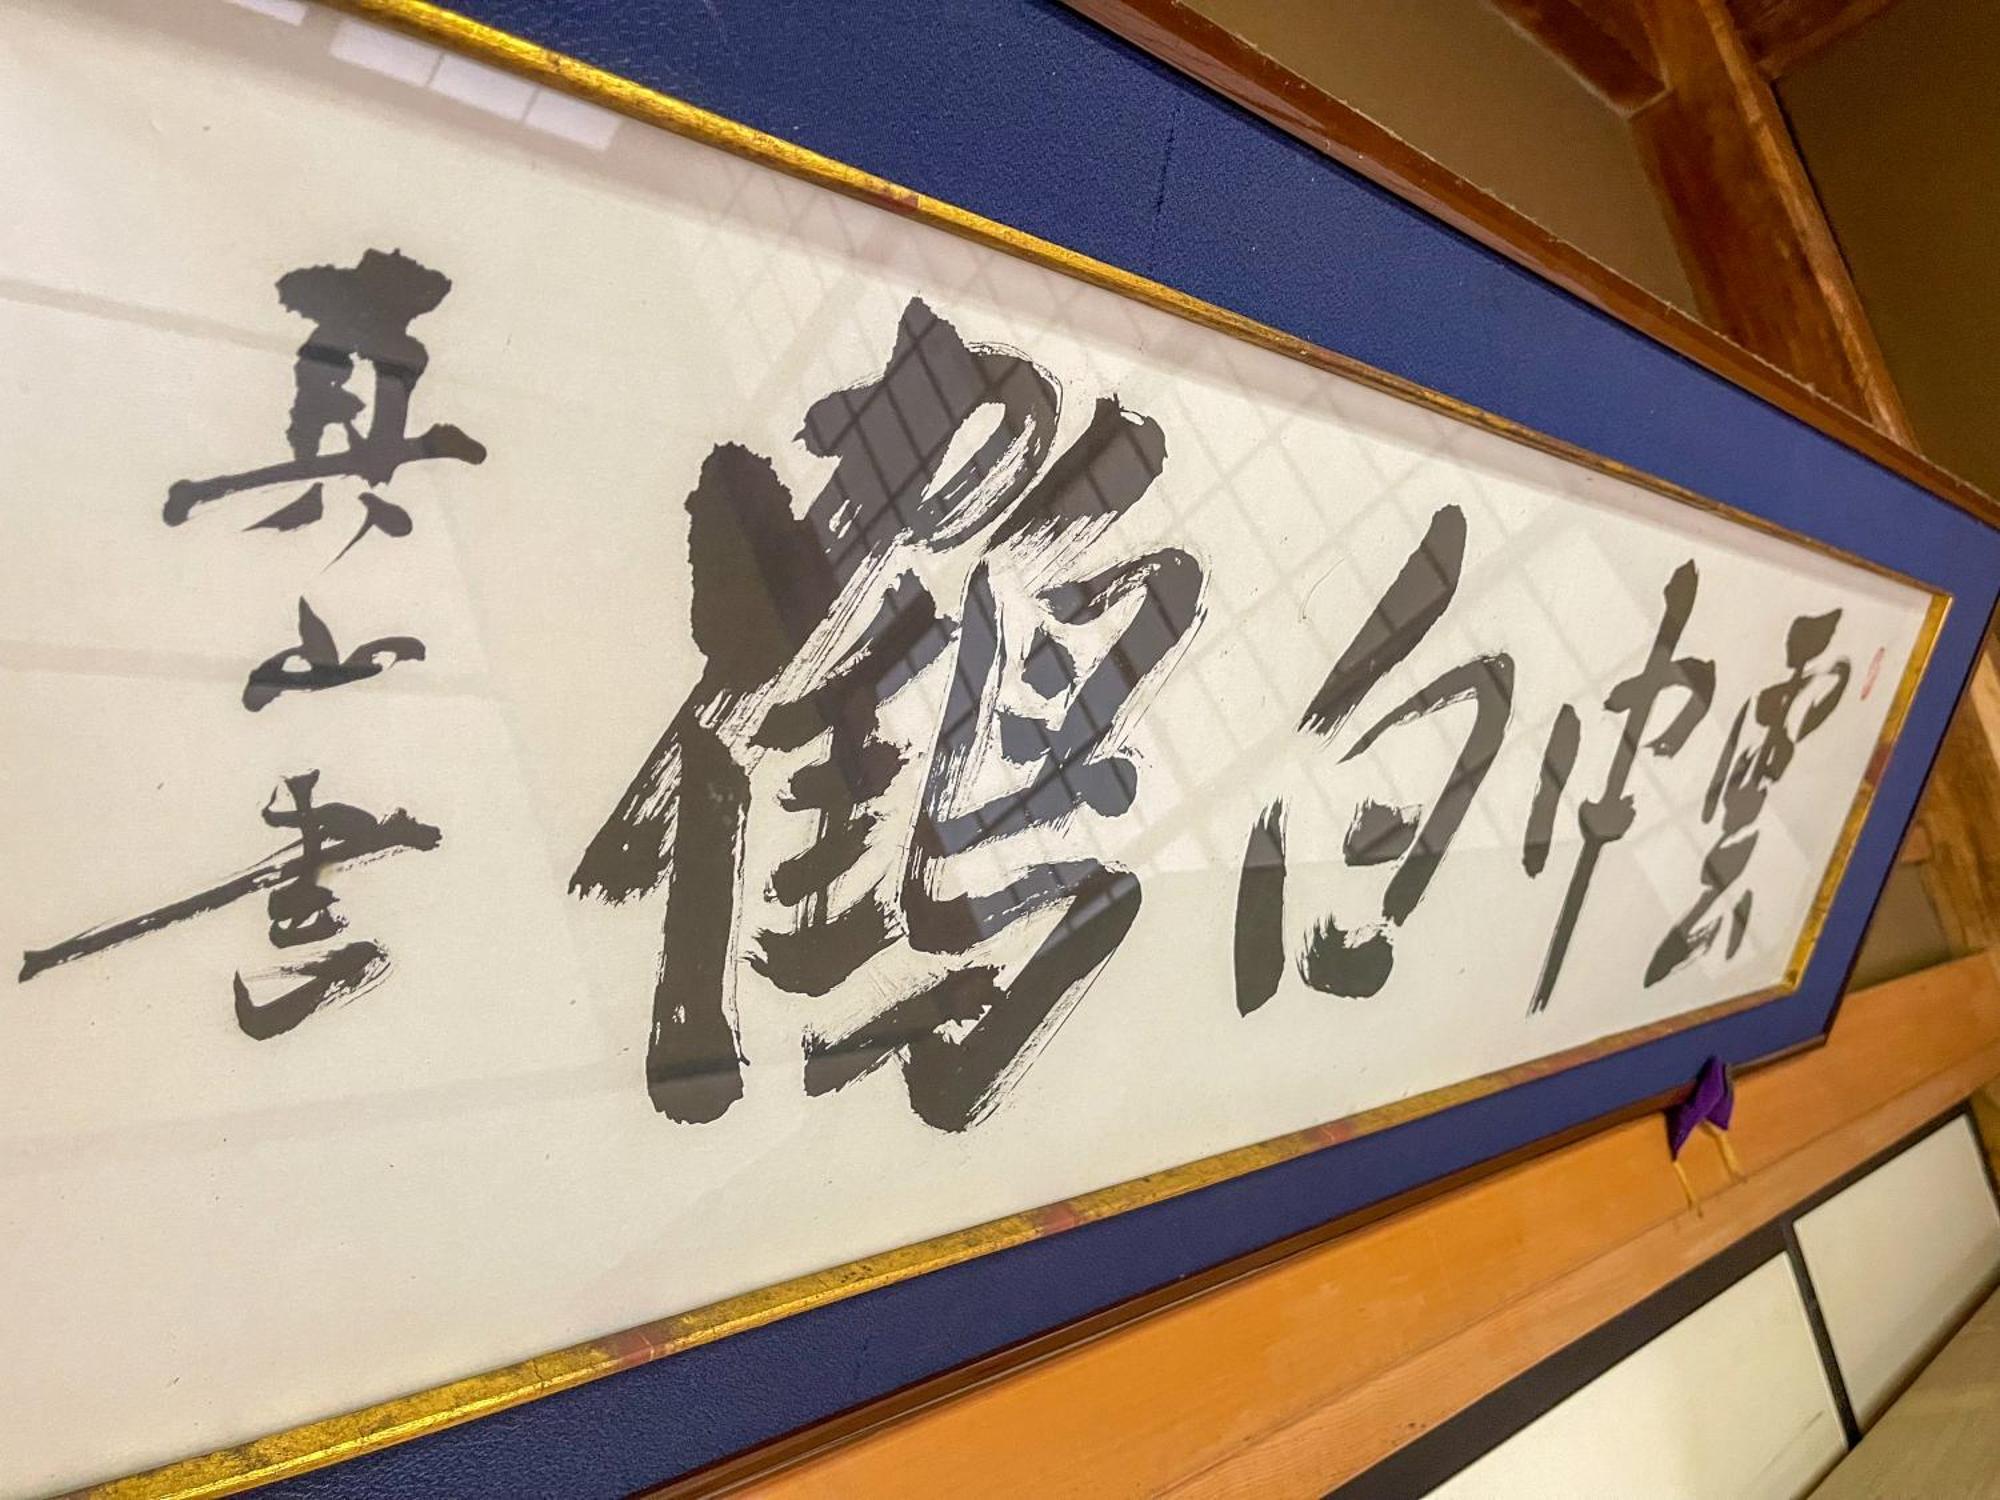 雲中白鶴
真山書